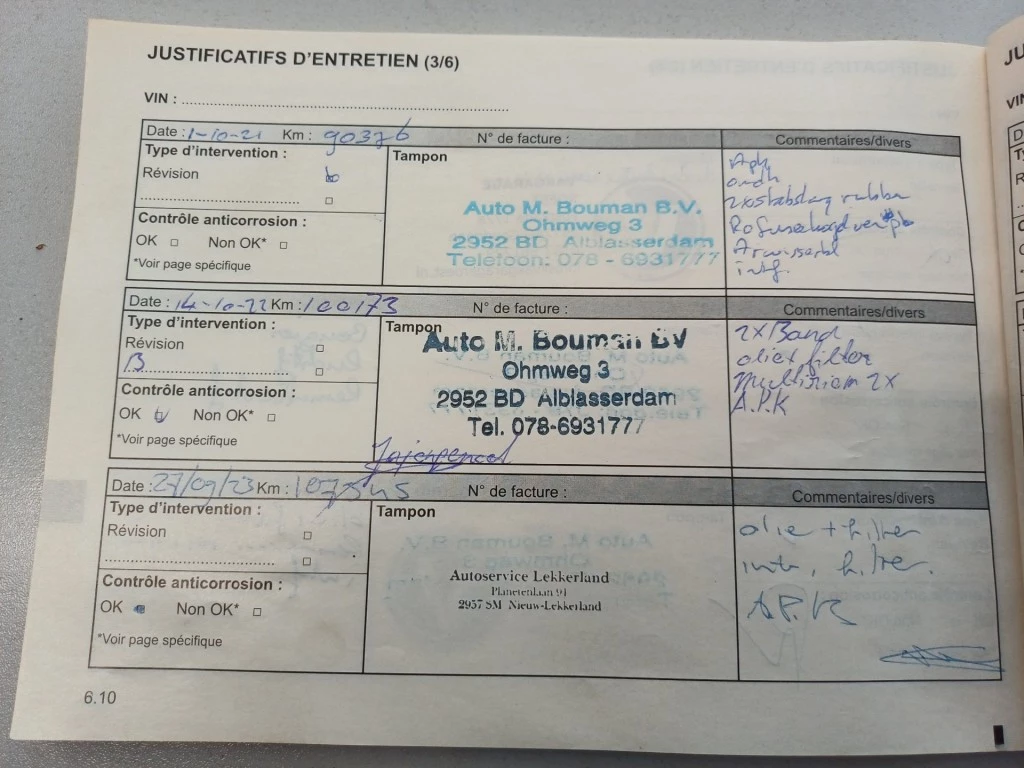 JUSTIFICATIFS D'ENTRETIEN (3/6)
VIN :
Date : 1-10-21 Km : 90376 N° de facture : Commentaires/divers
Type d'intervention :
Révision
Contrôle anticorrosion :
OK Non OK*
*Voir page spécifique
Tampon
Auto M. Bouman B.V.
Ohmweg 3
2952 BD Alblasserdam
Telefoon: 078 - 6931777
Apk
Date : 14-10-22 Km : 100173 N° de facture : Commentaires/divers
Type d'intervention :
Révision
B
Contrôle anticorrosion :
OK Non OK*
*Voir page spécifique
Tampon
Auto M. Bouman BV
Ohmweg 3
2952 BD Alblasserdam
Tel. 078-6931777
2x Band
olie+filter
Multiriem 2x
A.P.K
Date : 27/09/23 Km : 107545 N° de facture : Commentaires/divers
Type d'intervention :
Révision
Contrôle anticorrosion :
OK Non OK*
*Voir page spécifique
Tampon
Autoservice Lekkerland
Planetenlaan 91
2957 SM Nieuw-Lekkerland
olie + filter
filter.
A.P.K
6.10
JU
VIN